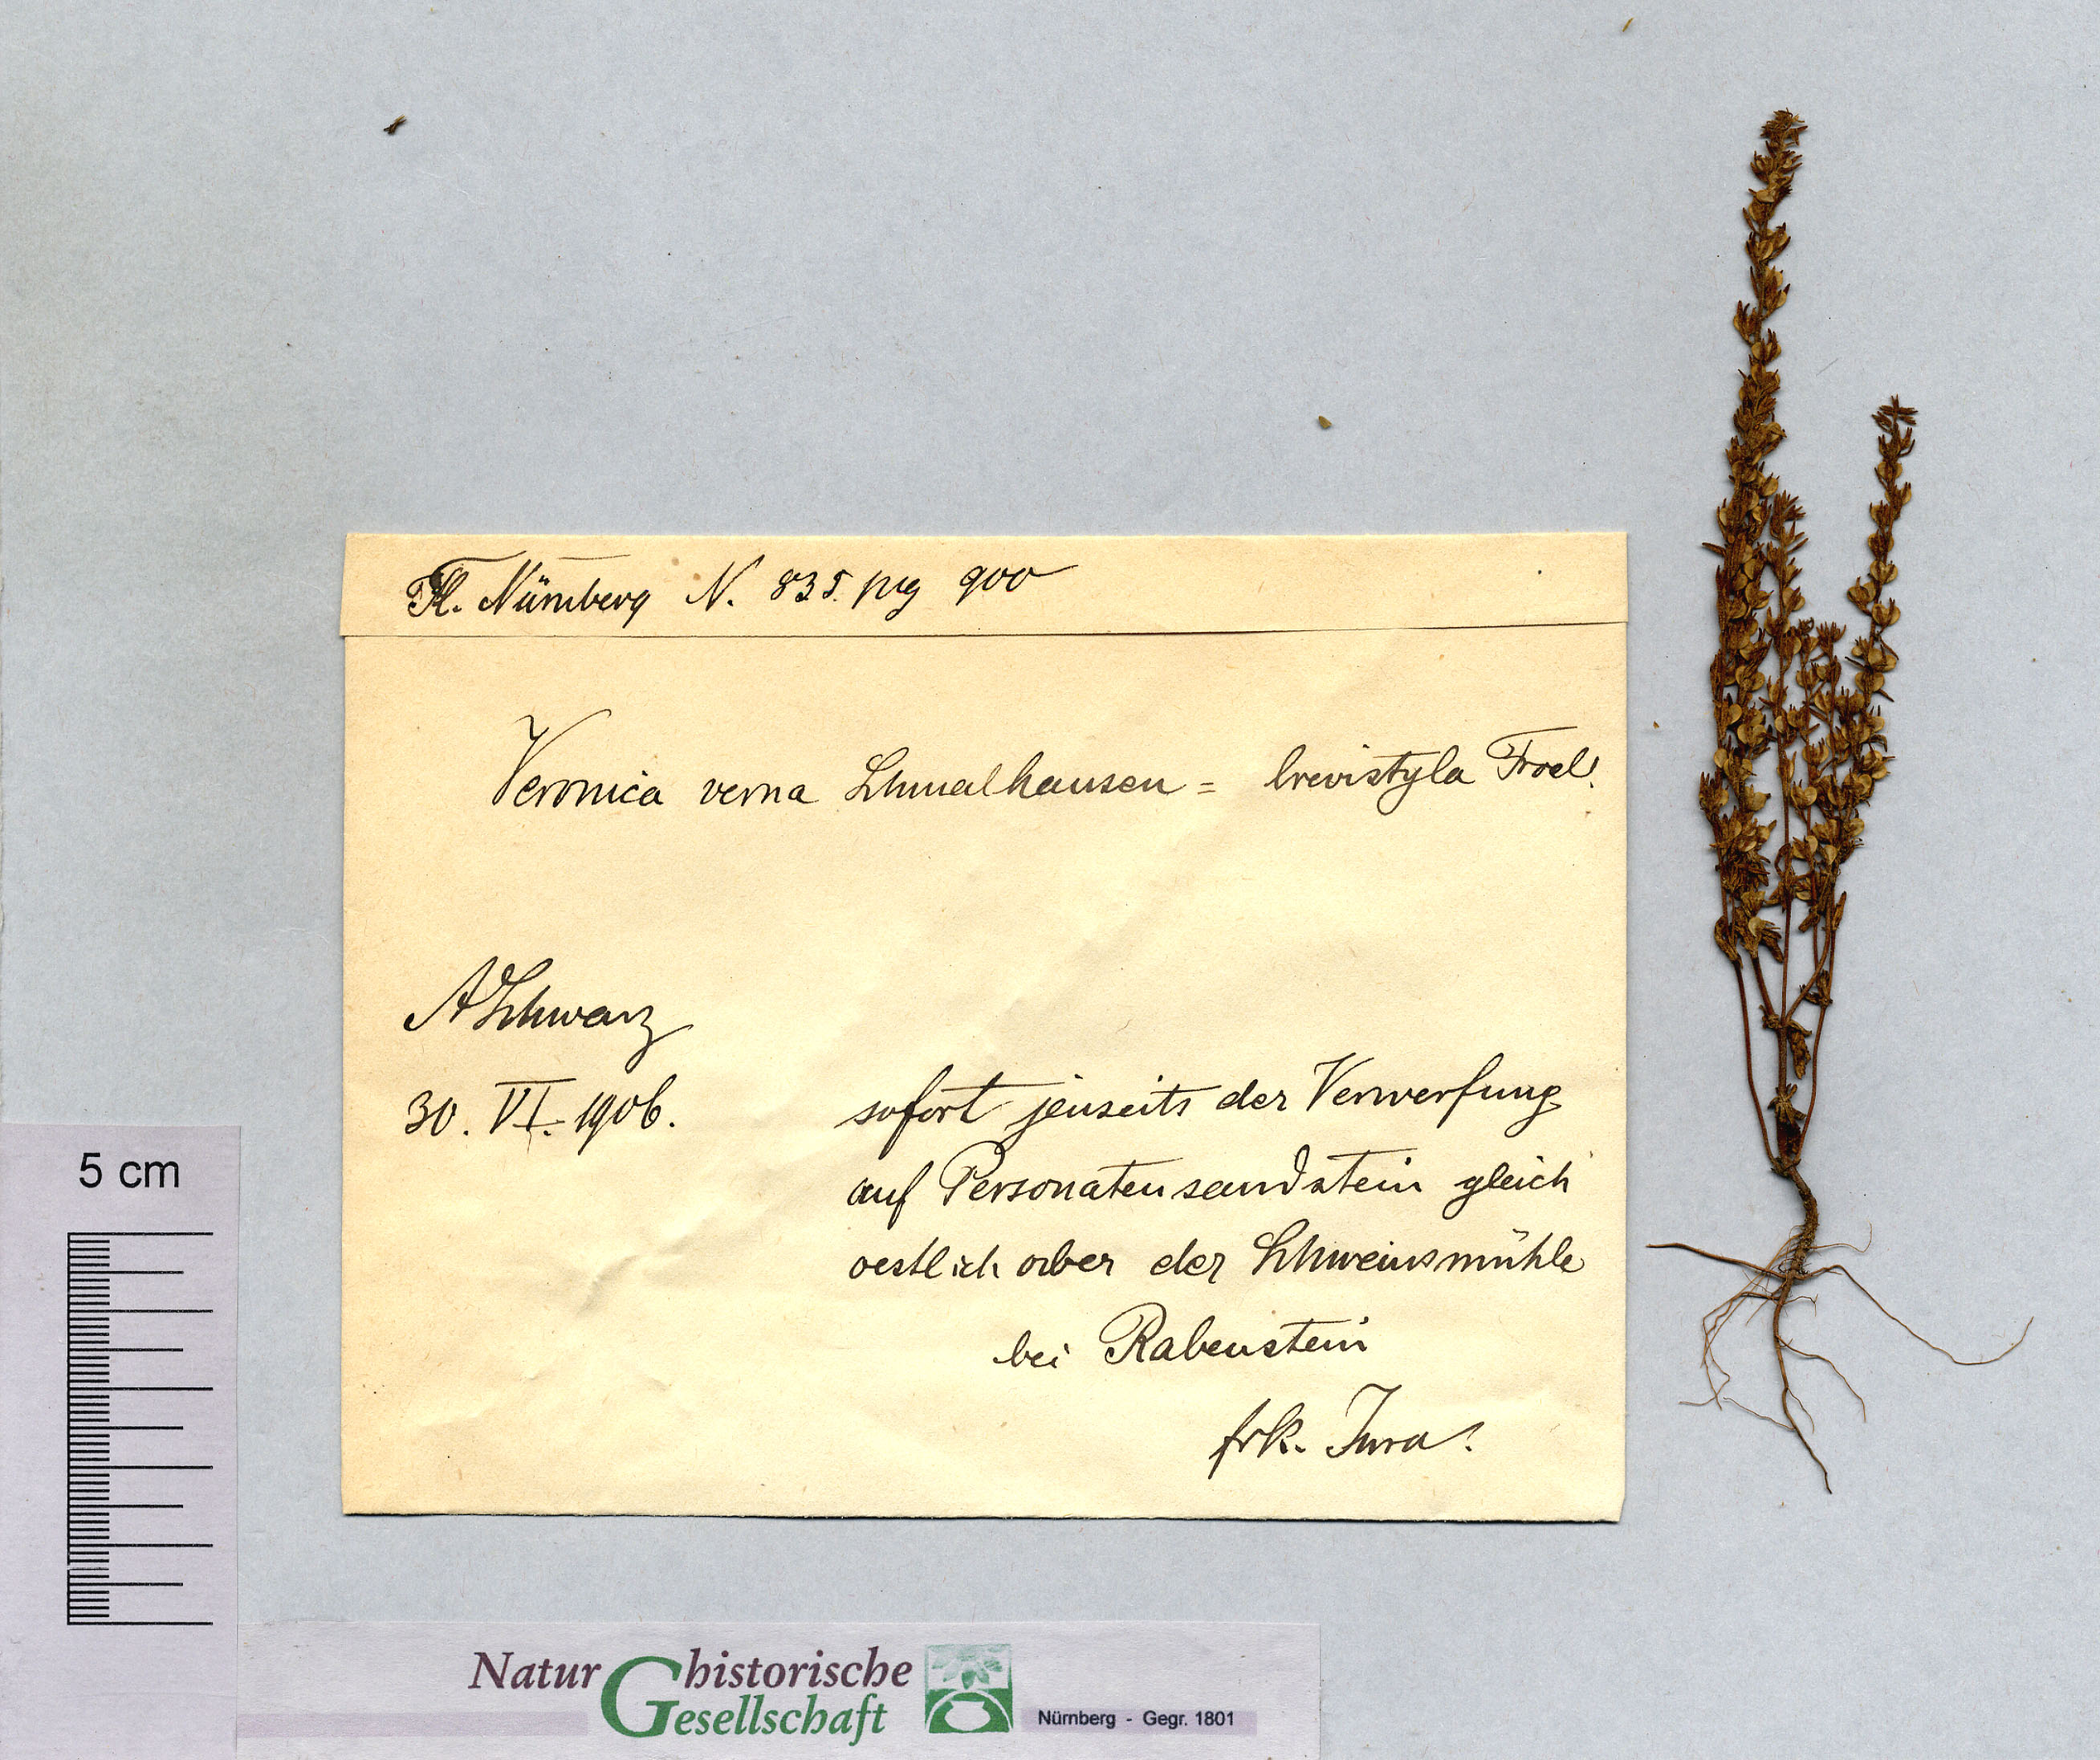 Fl. Nürnberg N. 835. pag 900
Veronica verna Schmalhausen = brevistyla Froel.
A Schwarz
30. VI. 1906.
sofort jenseits der Verwerfung
auf Personatensandstein gleich
oestlich ober der Schweinsmühle
bei Rabenstein
frk. Jura.
5 cm
Natur historische
Gesellschaft
Nürnberg - Gegr. 1801